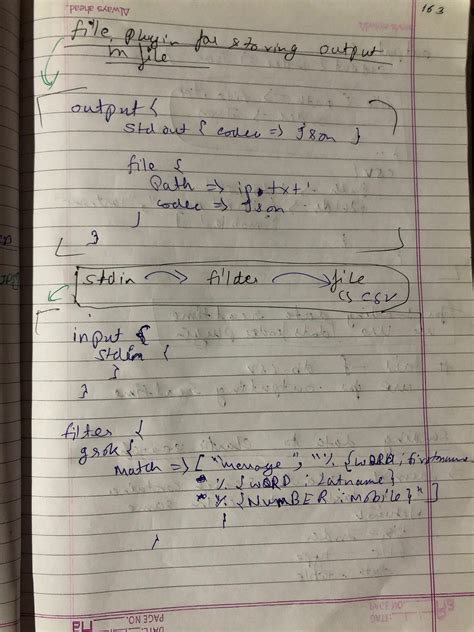 Always ahead.
163
file plugin for storing output
in file
output {
stdout { codec => Json }
file {
Path => ip.txt
codec => Json
}
}
stdin → filter → file
CSV
input {
stdin {
}
}
filter {
grok {
match => [ "message", "% {WORD : firstname
% {WORD : Latname}
% {NUMBER : mobile}" ]
}
}
PAGE NO.
DATE